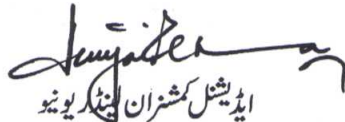 ایڈیشنل کمشنر ان لینڈ ریونیو